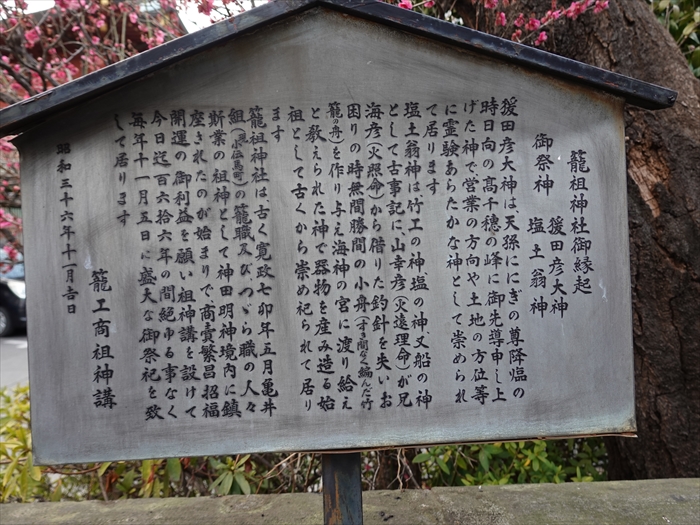 籠祖神社御縁起
御祭神 猨田彦大神
塩土翁神
猨田彦大神は天孫ににぎの尊降臨の
時日向の高千穂の峰に御先導申し上
げた神で営業の方向や土地の方位等
に霊験あらたかな神として崇められ
て居ります
塩土翁神は竹工の神塩の神又船の神
として古事記に、山幸彦(火遠理命)が兄
海彦(火照命)から借りた釣針を失いお
困りの時無間勝間の小舟(すき間なく編んだ竹
籠の舟)を作り与え海神の宮に渡り給え
と教えられた神で器物を産み造る始
祖として古くから崇め祀られて居り
ます
籠祖神社は、古く寛政七卯年五月亀井
組(現小伝馬町)の籠職及びつゞら職の人々
斯業の祖神として神田明神境内に鎮
座されたのが始まりで、商売繁昌招福
開運の御利益を願い祖神講を設けて
今日迄百六拾六年の間絶ゆる事なく
毎年十一月五日に盛大な御祭祀を致
して居ります
昭和三十六年十一月吉日
籠工商祖神講